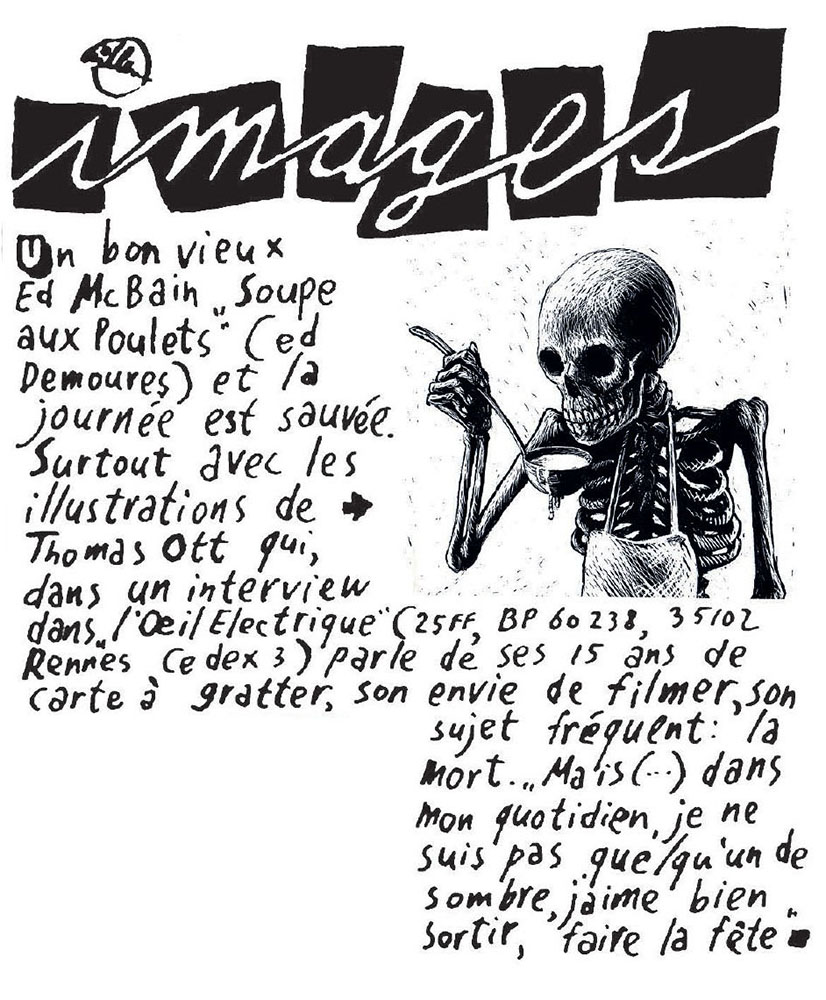 images
Un bon vieux
Ed McBain „Soupe
aux Poulets" (ed
Demoures) et la
journée est sauvée.
Surtout avec les
illustrations de
Thomas Ott qui,
dans un interview
dans „l'Œil Electrique" (25FF, BP 60238, 35102
Rennes Cedex 3) parle de ses 15 ans de
carte à gratter, son envie de filmer, son
sujet fréquent: la
mort. „Mais (...) dans
mon quotidien, je ne
suis pas quelqu'un de
sombre, j'aime bien
sortir, faire la fête"